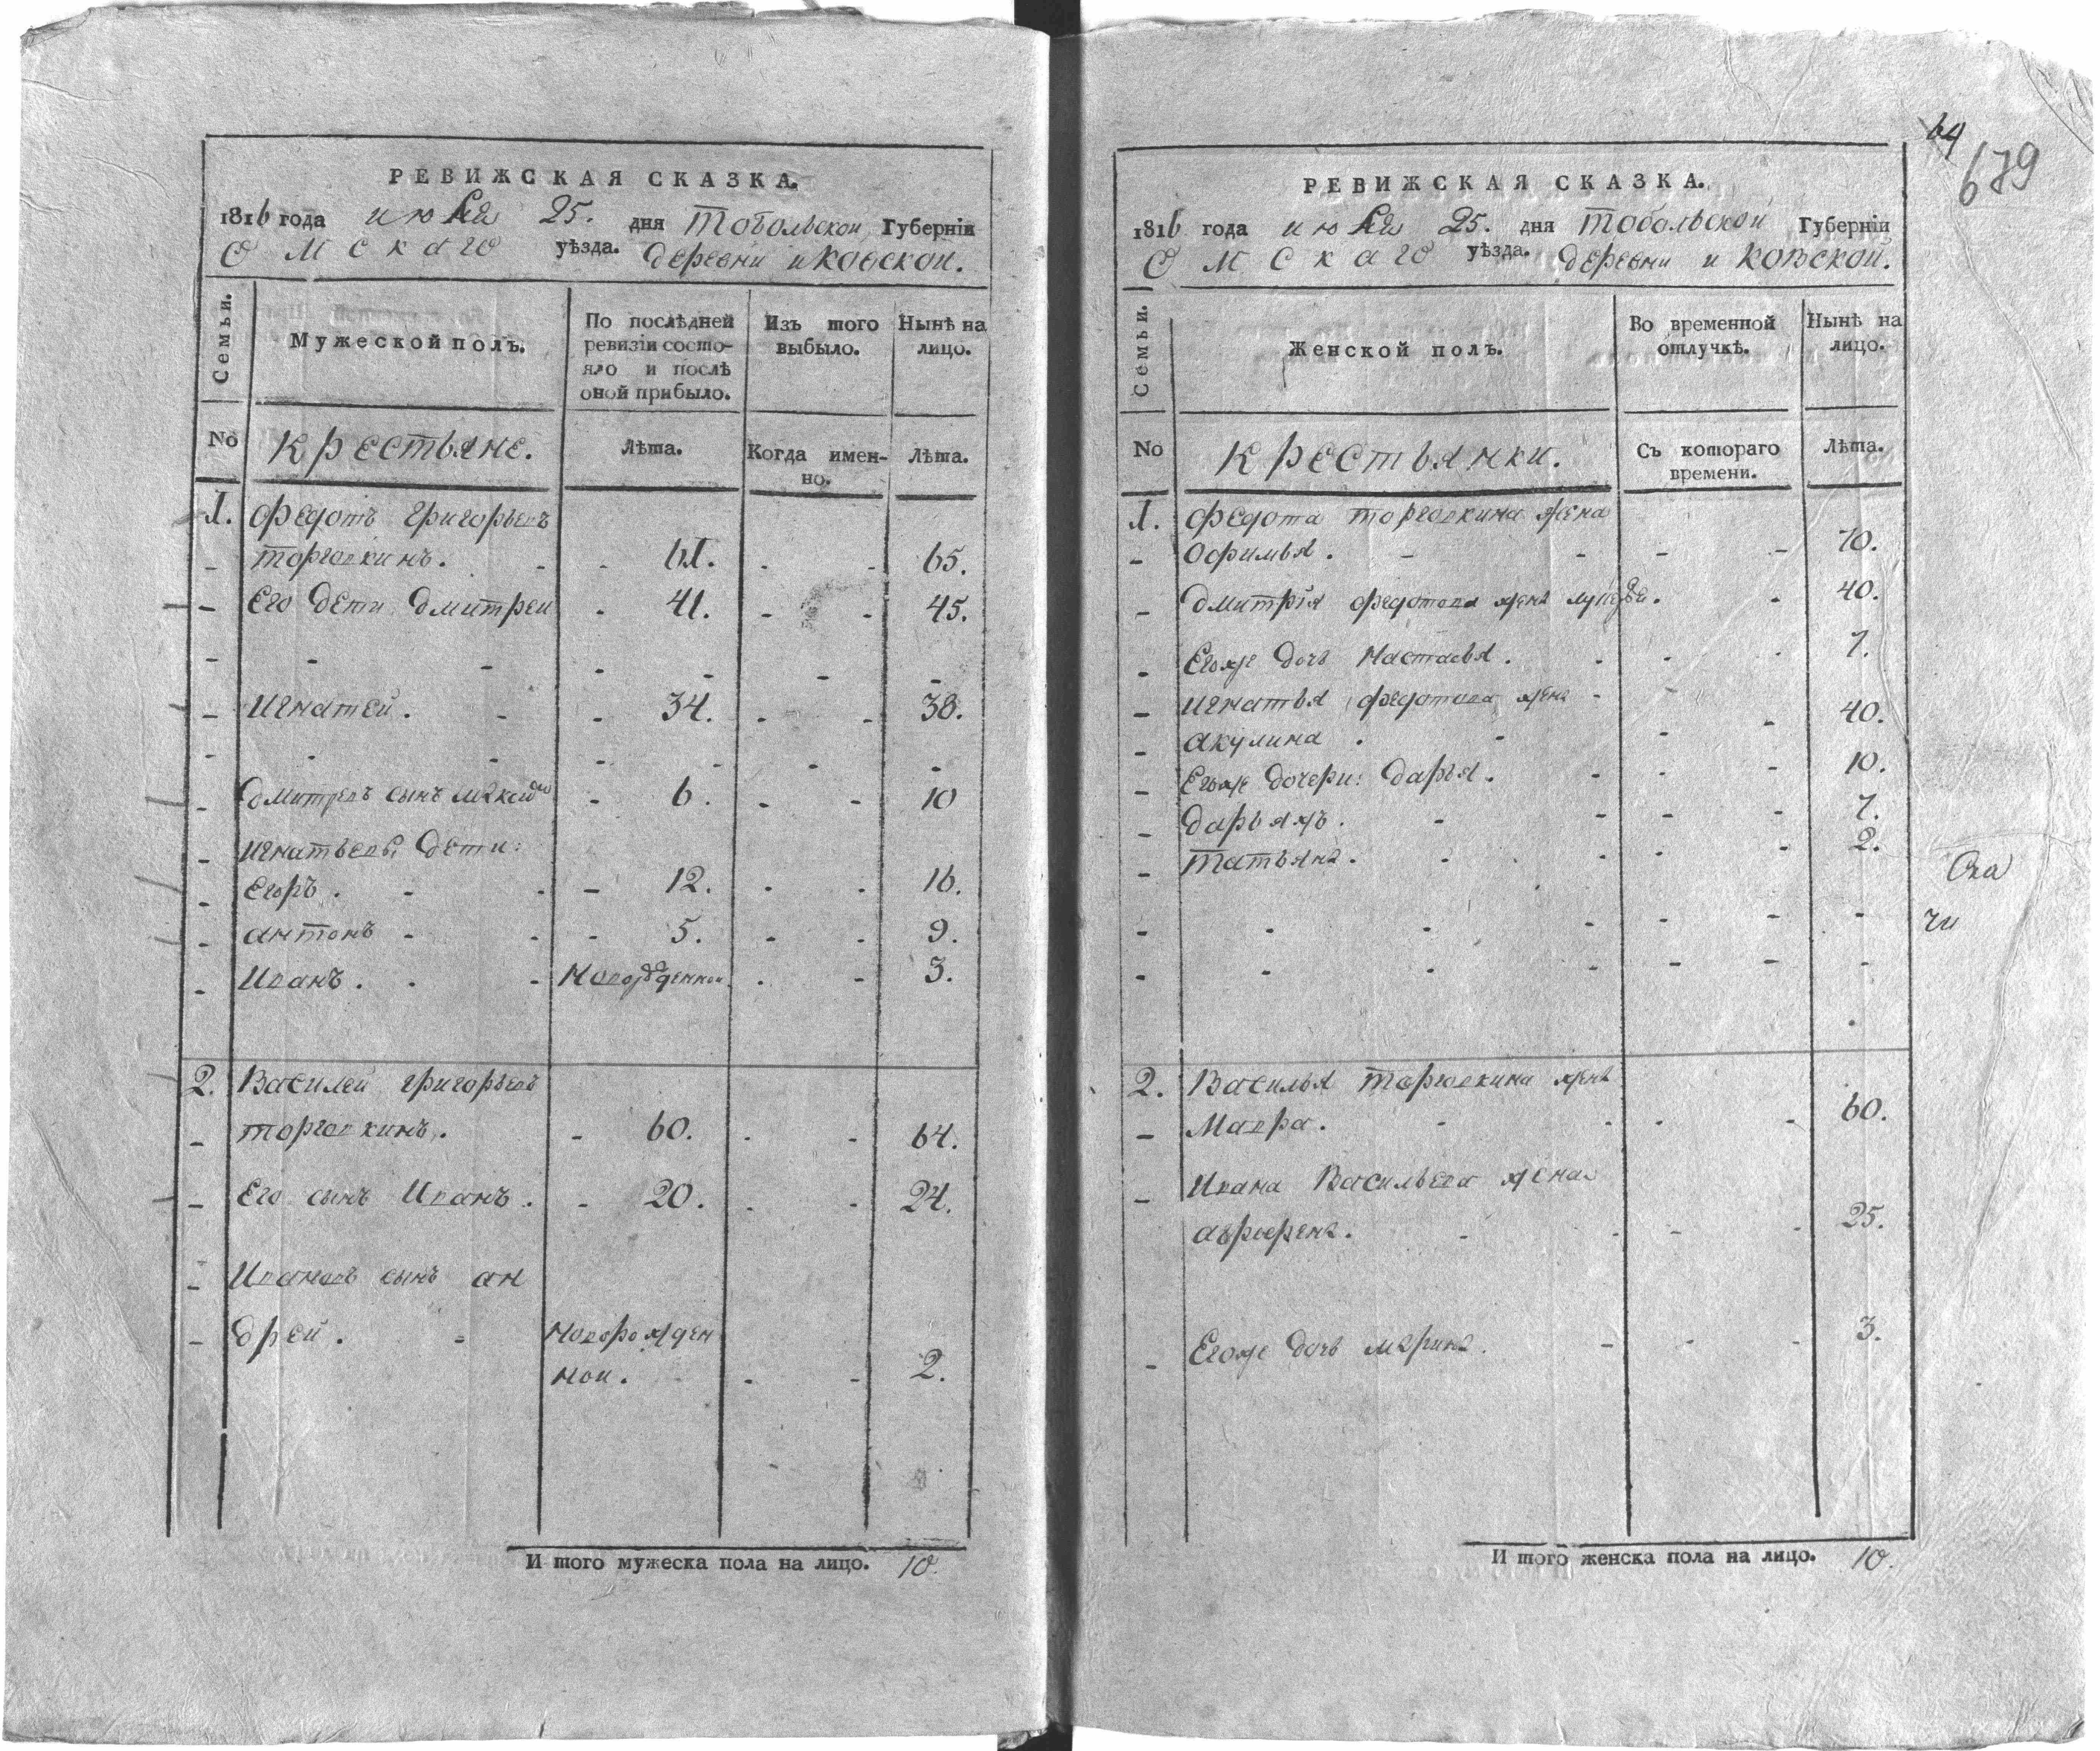 РЕВИЖСКАЯ СКАЗКА.
1816 года июля 25. дня Тобольской Губерніи
Омскаго уѣзда. деревни иковской.
Семьи.
Мужеской полъ.
По послѣдней ревизіи состояло и послѣ оной прибыло.
Изъ того выбыло.
Нынѣ на лицо.
No
Крестьяне.
Лѣта.
Когда именно.
Лѣта.
1. Федотъ Григорьевъ
- торговкинъ. - - 61. . - 65.
- Его дети Дмитреи - 41. - - 45.
- - - - - - -
- Игнатей. - - 34. - - 38.
- - - - - -
- Дмитревъ сынъ - 6. - - 10
- Игнатьевы дети:
- Егоръ. - - - 12. . - 16.
- антонъ - - - 5. - - 9.
- Иванъ. . - . - 3.
2. Василей Григорьевъ
- торговкинъ. - 60. . - 64.
- Его сынъ Иванъ. - 20. . - 24.
- Ивановъ сынъ ан
- дрей. - новорожден
ной. - - 2.
И того мужеска пола на лицо. 10.
64
679
РЕВИЖСКАЯ СКАЗКА.
1816 года июля 25. дня Тобольской Губерніи
Омскаго уѣзда. деревни иковской.
Семьи.
Женской полъ.
Во временной отлучкѣ.
Нынѣ на лицо.
No
Крестьянки.
Съ котораго времени.
Лѣта.
1. Федота торговкина жена
- Офимья. - - - - 70.
- Дмитрія федотова жена . 40.
- Егоже дочь Настасья. . - . 7.
- Игнатья федотова жена -
- акулина . - - - 40.
- Егоже дочери: дарья. - - - 10.
- дарьяжъ. - - - - 7.
- татьяна. - - - - 2.
- - - - - - -
- - - - - - -
Ска
чи
2. Василья торговкина жена
- Мавра. - - - - 60.
- Ивана Васильева жена
- - - - 25.
- Егоже дочь марина. - - - 3.
И того женска пола на лицо. 10.